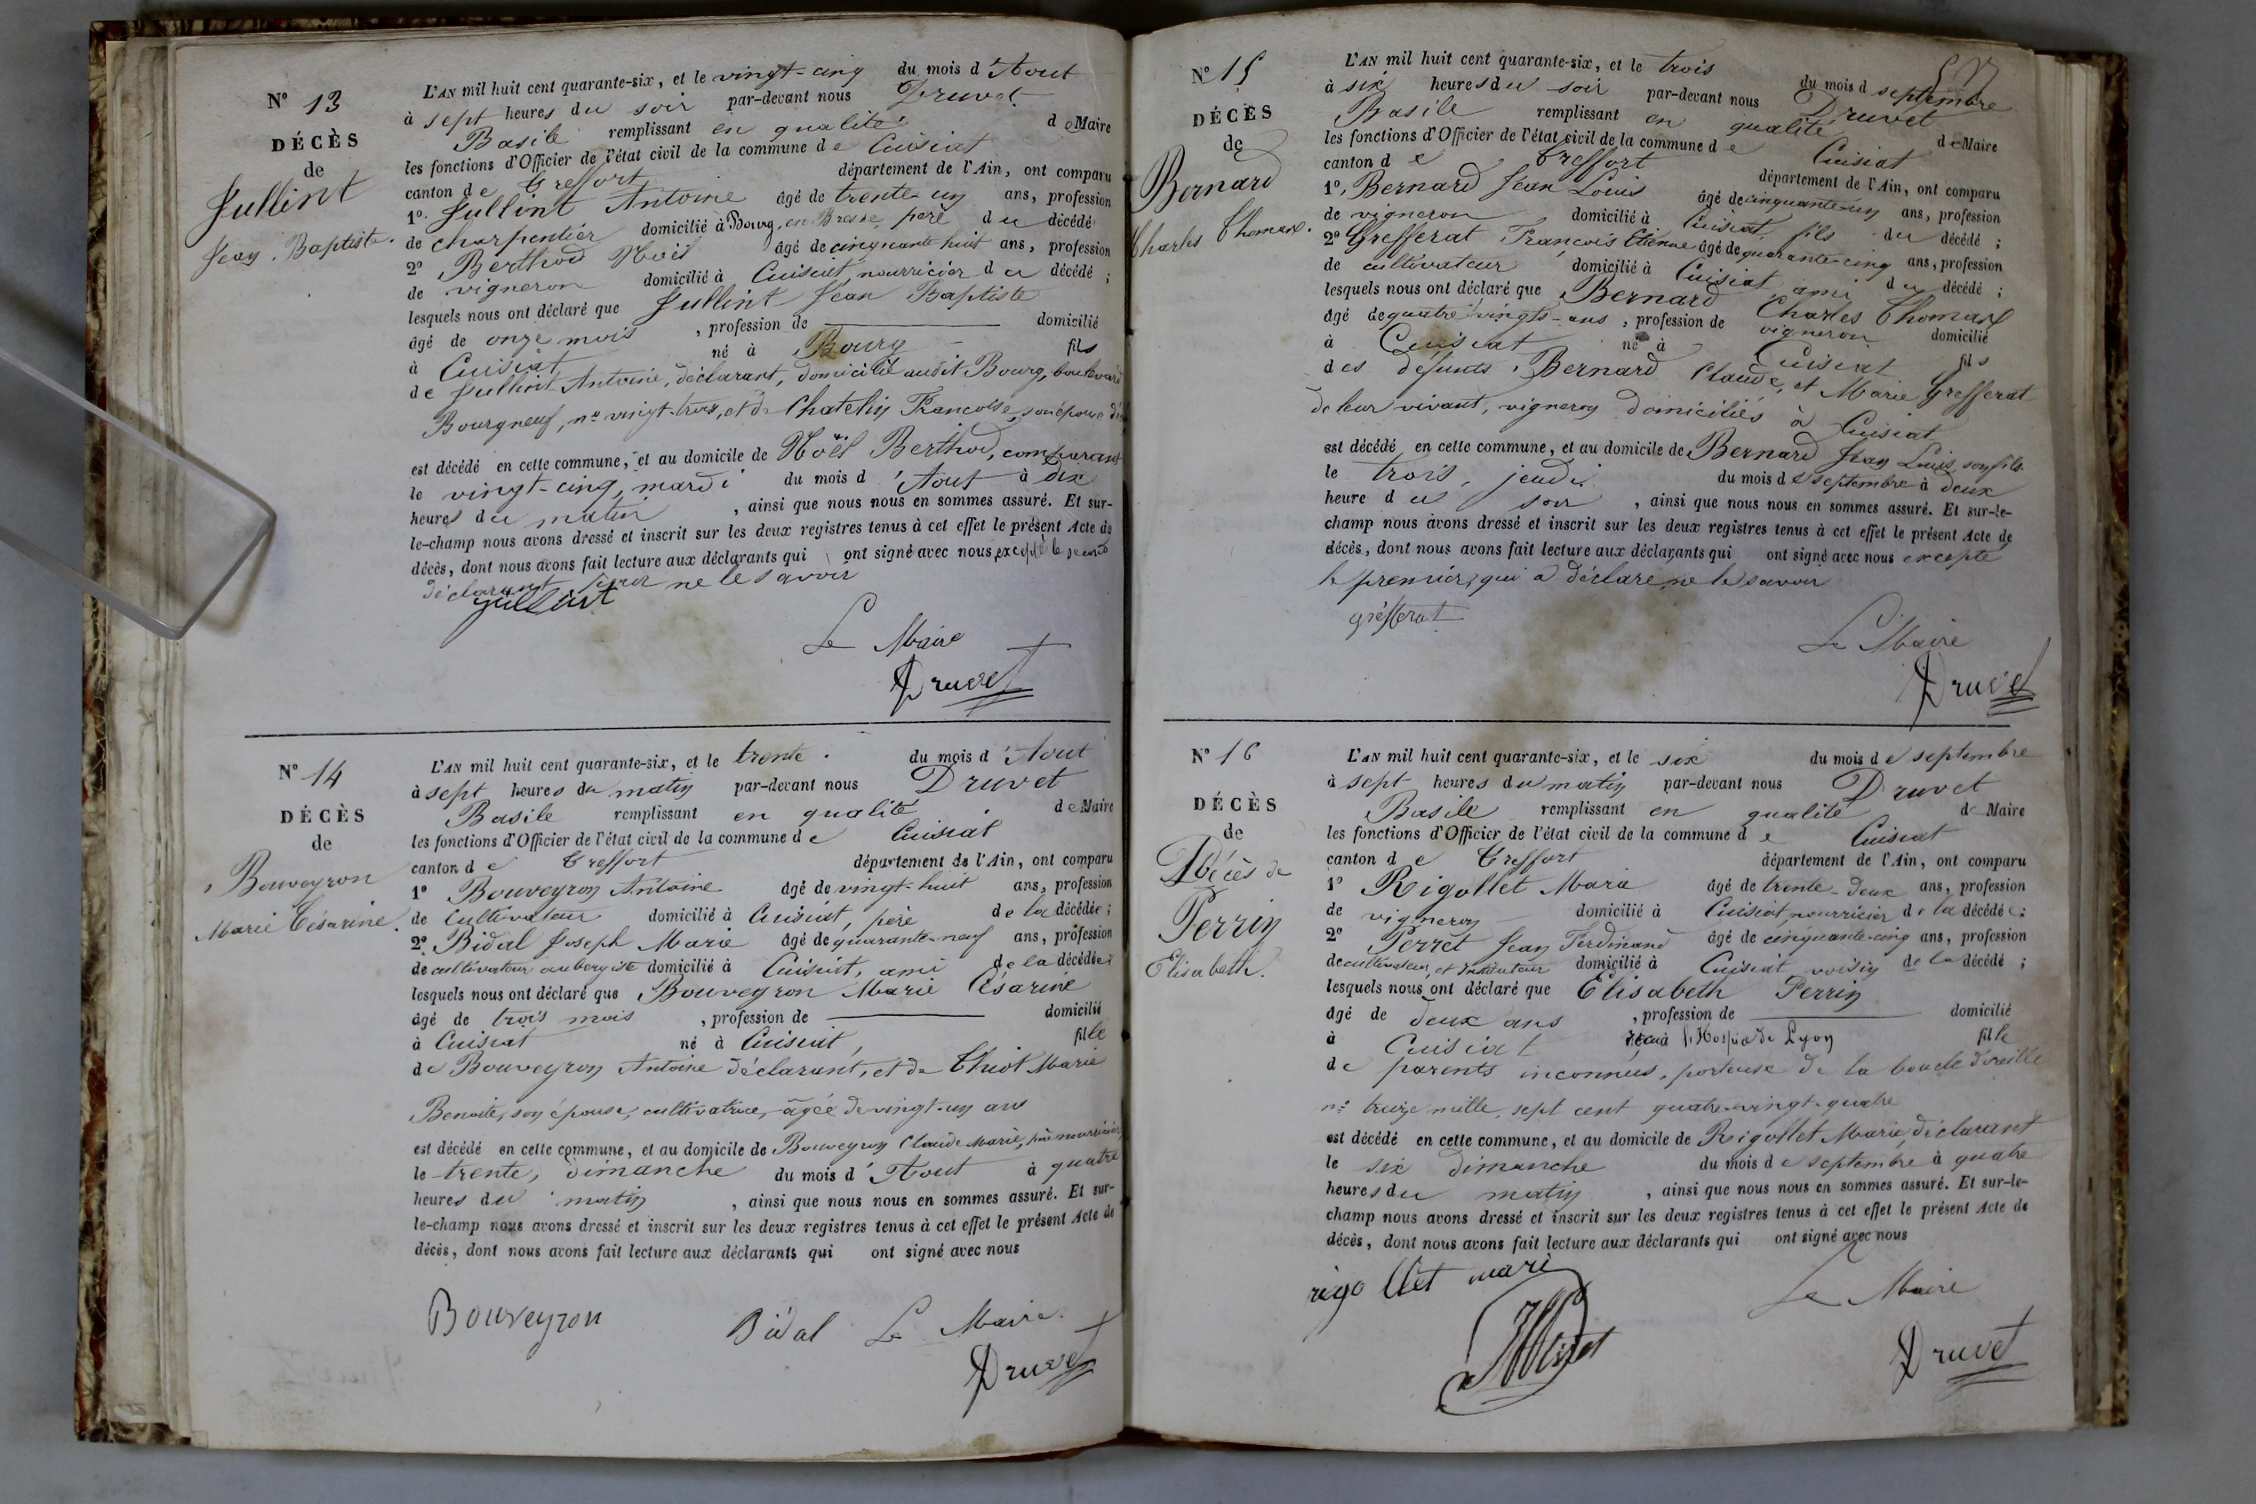 N° 13
DÉCÈS
de
Jullint
Jean Baptiste.
L'AN mil huit cent quarante-six, et le vingt-cinq du mois d'Aout
à sept heures du soir par-devant nous Druvet
Basile remplissant en qualité de Maire
les fonctions d'Officier de l'état civil de la commune de Cuisiat
canton de Treffort département de l'Ain, ont comparu
1° Jullint Antoine âgé de trente-un ans, profession
de charpentier domicilié à Bourg en Bresse, père du décédé
2° Berthod Noël âgé de cinquante huit ans, profession
de vigneron domicilié à Cuisiat, nourricier du décédé ;
lesquels nous ont déclaré que Jullint Jean Baptiste
âgé de onze mois , profession de domicilié
à Cuisiat né à Bourg fils
de Jullint Antoine, déclarant, domicilié audit Bourg, boulevard
Bourgneuf, n° vingt-trois, et de Chatelin Francoise, son épouse
est décédé en cette commune, et au domicile de Noël Berthod, comparant
le vingt-cinq, mardi du mois d'Aout à dix
heures du matin , ainsi que nous nous en sommes assuré. Et sur-
le-champ nous avons dressé et inscrit sur les deux registres tenus à cet effet le présent Acte de
décès, dont nous avons fait lecture aux déclarants qui ont signé avec nous excepté le second
déclarant pour ne le savoir
Jullint
Le Maire
Druvet
N° 14
DÉCÈS
de
Bouveyron
Marie Césarine.
L'AN mil huit cent quarante-six, et le trente du mois d'Aout
à sept heures du matin par-devant nous Druvet
Basile remplissant en qualité de Maire
les fonctions d'Officier de l'état civil de la commune de Cuisiat
canton de Treffort département de l'Ain, ont comparu
1° Bouveyron Antoine âgé de vingt-huit ans, profession
de cultivateur domicilié à Cuisiat, père de la décédée ;
2° Bidal Joseph Marie âgé de quarante-neuf ans, profession
de cultivateur aubergiste domicilié à Cuisiat, ami de la décédée ;
lesquels nous ont déclaré que Bouveyron Marie Césarine
âgé de trois mois , profession de domicilié
à Cuisiat né à Cuisiat, fille
de Bouveyron Antoine déclarant, et de Thiot Marie
Benoite, son épouse, cultivatrice, âgée de vingt-un ans
est décédé en cette commune, et au domicile de Bouveyron Claude Marie, père nourricier
le trente, dimanche du mois d'Aout à quatre
heures du matin , ainsi que nous nous en sommes assuré. Et sur-
le-champ nous avons dressé et inscrit sur les deux registres tenus à cet effet le présent Acte de
décès, dont nous avons fait lecture aux déclarants qui ont signé avec nous
Bouveyron Bidal Le Maire
Druvet
N° 15
DÉCÈS
de
Bernard
Charles Thomas.
L'AN mil huit cent quarante-six, et le trois du mois de septembre
à six heures du soir par-devant nous Druvet
Basile remplissant en qualité de Maire
les fonctions d'Officier de l'état civil de la commune de Cuisiat
canton de Treffort département de l'Ain, ont comparu
1° Bernard Jean Louis âgé de cinquante-un ans, profession
de vigneron domicilié à Cuisiat, fils du décédé ;
2° Grefferat François Etienne âgé de quarante-cinq ans, profession
de cultivateur domicilié à Cuisiat ami du décédé ;
lesquels nous ont déclaré que Bernard Charles Thomas
âgé de quatre-vingts-ans , profession de vigneron domicilié
à Cuisiat né à Cuisiat fils
des défunts Bernard Claude, et Marie Grefferat
de leur vivant, vigneron domiciliés à Cuisiat
est décédé en cette commune, et au domicile de Bernard Jean Louis son fils
le trois, jeudi du mois de septembre à deux
heure du soir , ainsi que nous nous en sommes assuré. Et sur-le-
champ nous avons dressé et inscrit sur les deux registres tenus à cet effet le présent Acte de
décès, dont nous avons fait lecture aux déclarants qui ont signé avec nous excepté
le premier, qui a déclaré ne le savoir
grefferat
Le Maire
Druvet
N° 16
DÉCÈS
de
Décès de
Perrin
Elisabeth.
L'AN mil huit cent quarante-six, et le six du mois de septembre
à sept heures du matin par-devant nous Druvet
Basile remplissant en qualité de Maire
les fonctions d'Officier de l'état civil de la commune de Cuisiat
canton de Treffort département de l'Ain, ont comparu
1° Rigollet Marie âgé de trente-deux ans, profession
de vigneron domicilié à Cuisiat nourricier de la décédée ;
2° Perret Jean Ferdinand âgé de cinquante-cinq ans, profession
de cultivateur, et instituteur domicilié à Cuisiat voisin de la décédé ;
lesquels nous ont déclaré que Elisabeth Perrin
âgé de deux ans , profession de domicilié
à Cuisiat à l'Hospice de Lyon fille
de parents inconnus, porteuse de la boucle d'oreille
n° treize mille, sept cent quatre-vingt-quatre
est décédé en cette commune, et au domicile de Rigollet Marie, déclarant
le six dimanche du mois de septembre à quatre
heures du matin , ainsi que nous nous en sommes assuré. Et sur-le-
champ nous avons dressé et inscrit sur les deux registres tenus à cet effet le présent Acte de
décès, dont nous avons fait lecture aux déclarants qui ont signé avec nous
rigollet marie
Le Maire
Druvet